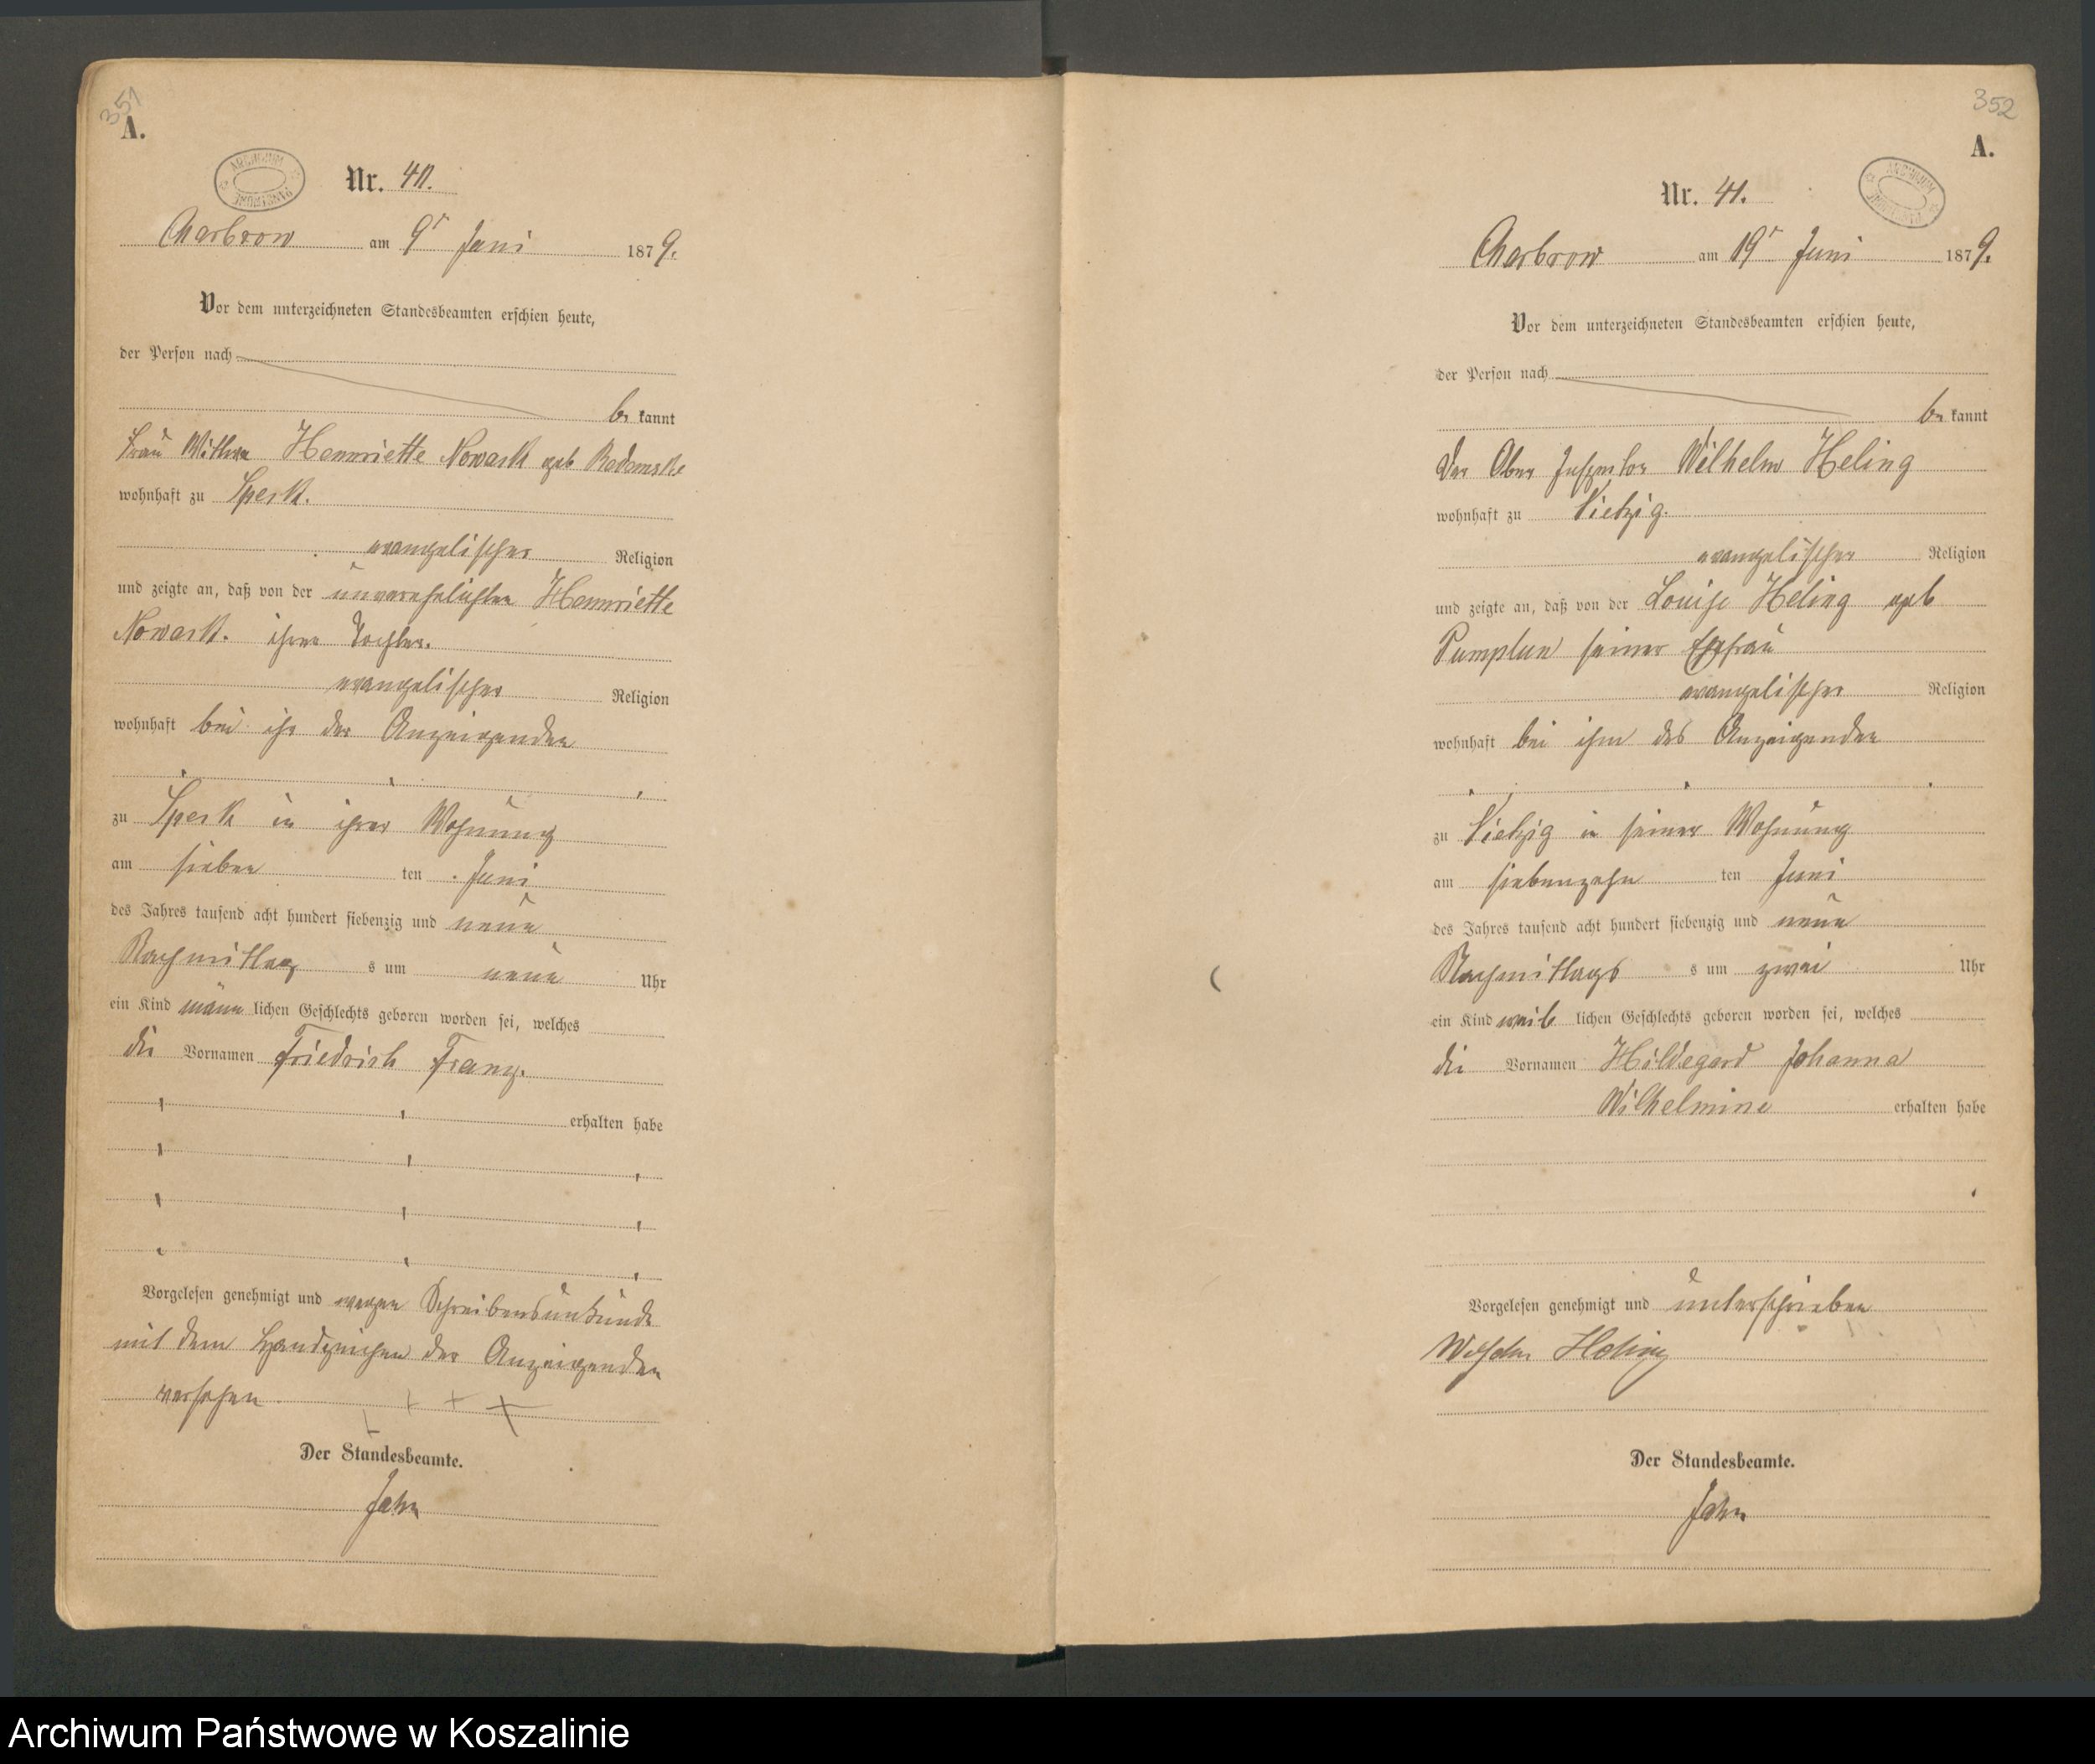 351
A.
ARCHIWUM PAŃSTWOWE
Nr. 40.
Charbrow am 9t Juni 1879.
Vor dem unterzeichneten Standesbeamten erschien heute,
der Person nach
be kannt
Frau Wittwe Hennriette Nowack geb Rademske
wohnhaft zu Speck.
evangelischer Religion
und zeigte an, daß von der unverehelichten Hennriette
Nowack. ihrer Tochter.
evangelischer Religion
wohnhaft bei ihr der Anzeigenden
zu Speck in ihrer Wohnung
am sieben ten Juni
des Jahres tausend acht hundert siebenzig und neun
Nachmittag s um neun Uhr
ein Kind männ lichen Geschlechts geboren worden sei, welches
die Vornamen Friedrich Franz.
erhalten habe
Vorgelesen genehmigt und wegen Schreibensunkunde
mit dem Handzeichen der Anzeigenden
versehen + + +
Der Standesbeamte.
Jahn
352
A.
ARCHIWUM PAŃSTWOWE
Nr. 41.
Charbrow am 19t Juni 1879.
Vor dem unterzeichneten Standesbeamten erschien heute,
der Person nach
be kannt
Der Ober Inspector Wilhelm Heling
wohnhaft zu Vietzig.
evangelischer Religion
und zeigte an, daß von der Louise Heling geb
Pumplun seiner Ehefrau
evangelischer Religion
wohnhaft bei ihm des Anzeigenden
zu Vietzig in seiner Wohnung
am siebenzehn ten Juni
des Jahres tausend acht hundert siebenzig und neun
Nachmittags s um zwei Uhr
ein Kind weib lichen Geschlechts geboren worden sei, welches
die Vornamen Hildegard Johanna
Wilhelmine erhalten habe
Vorgelesen genehmigt und unterschrieben
Wilhelm Heling
Der Standesbeamte.
Jahn
Archiwum Państwowe w Koszalinie